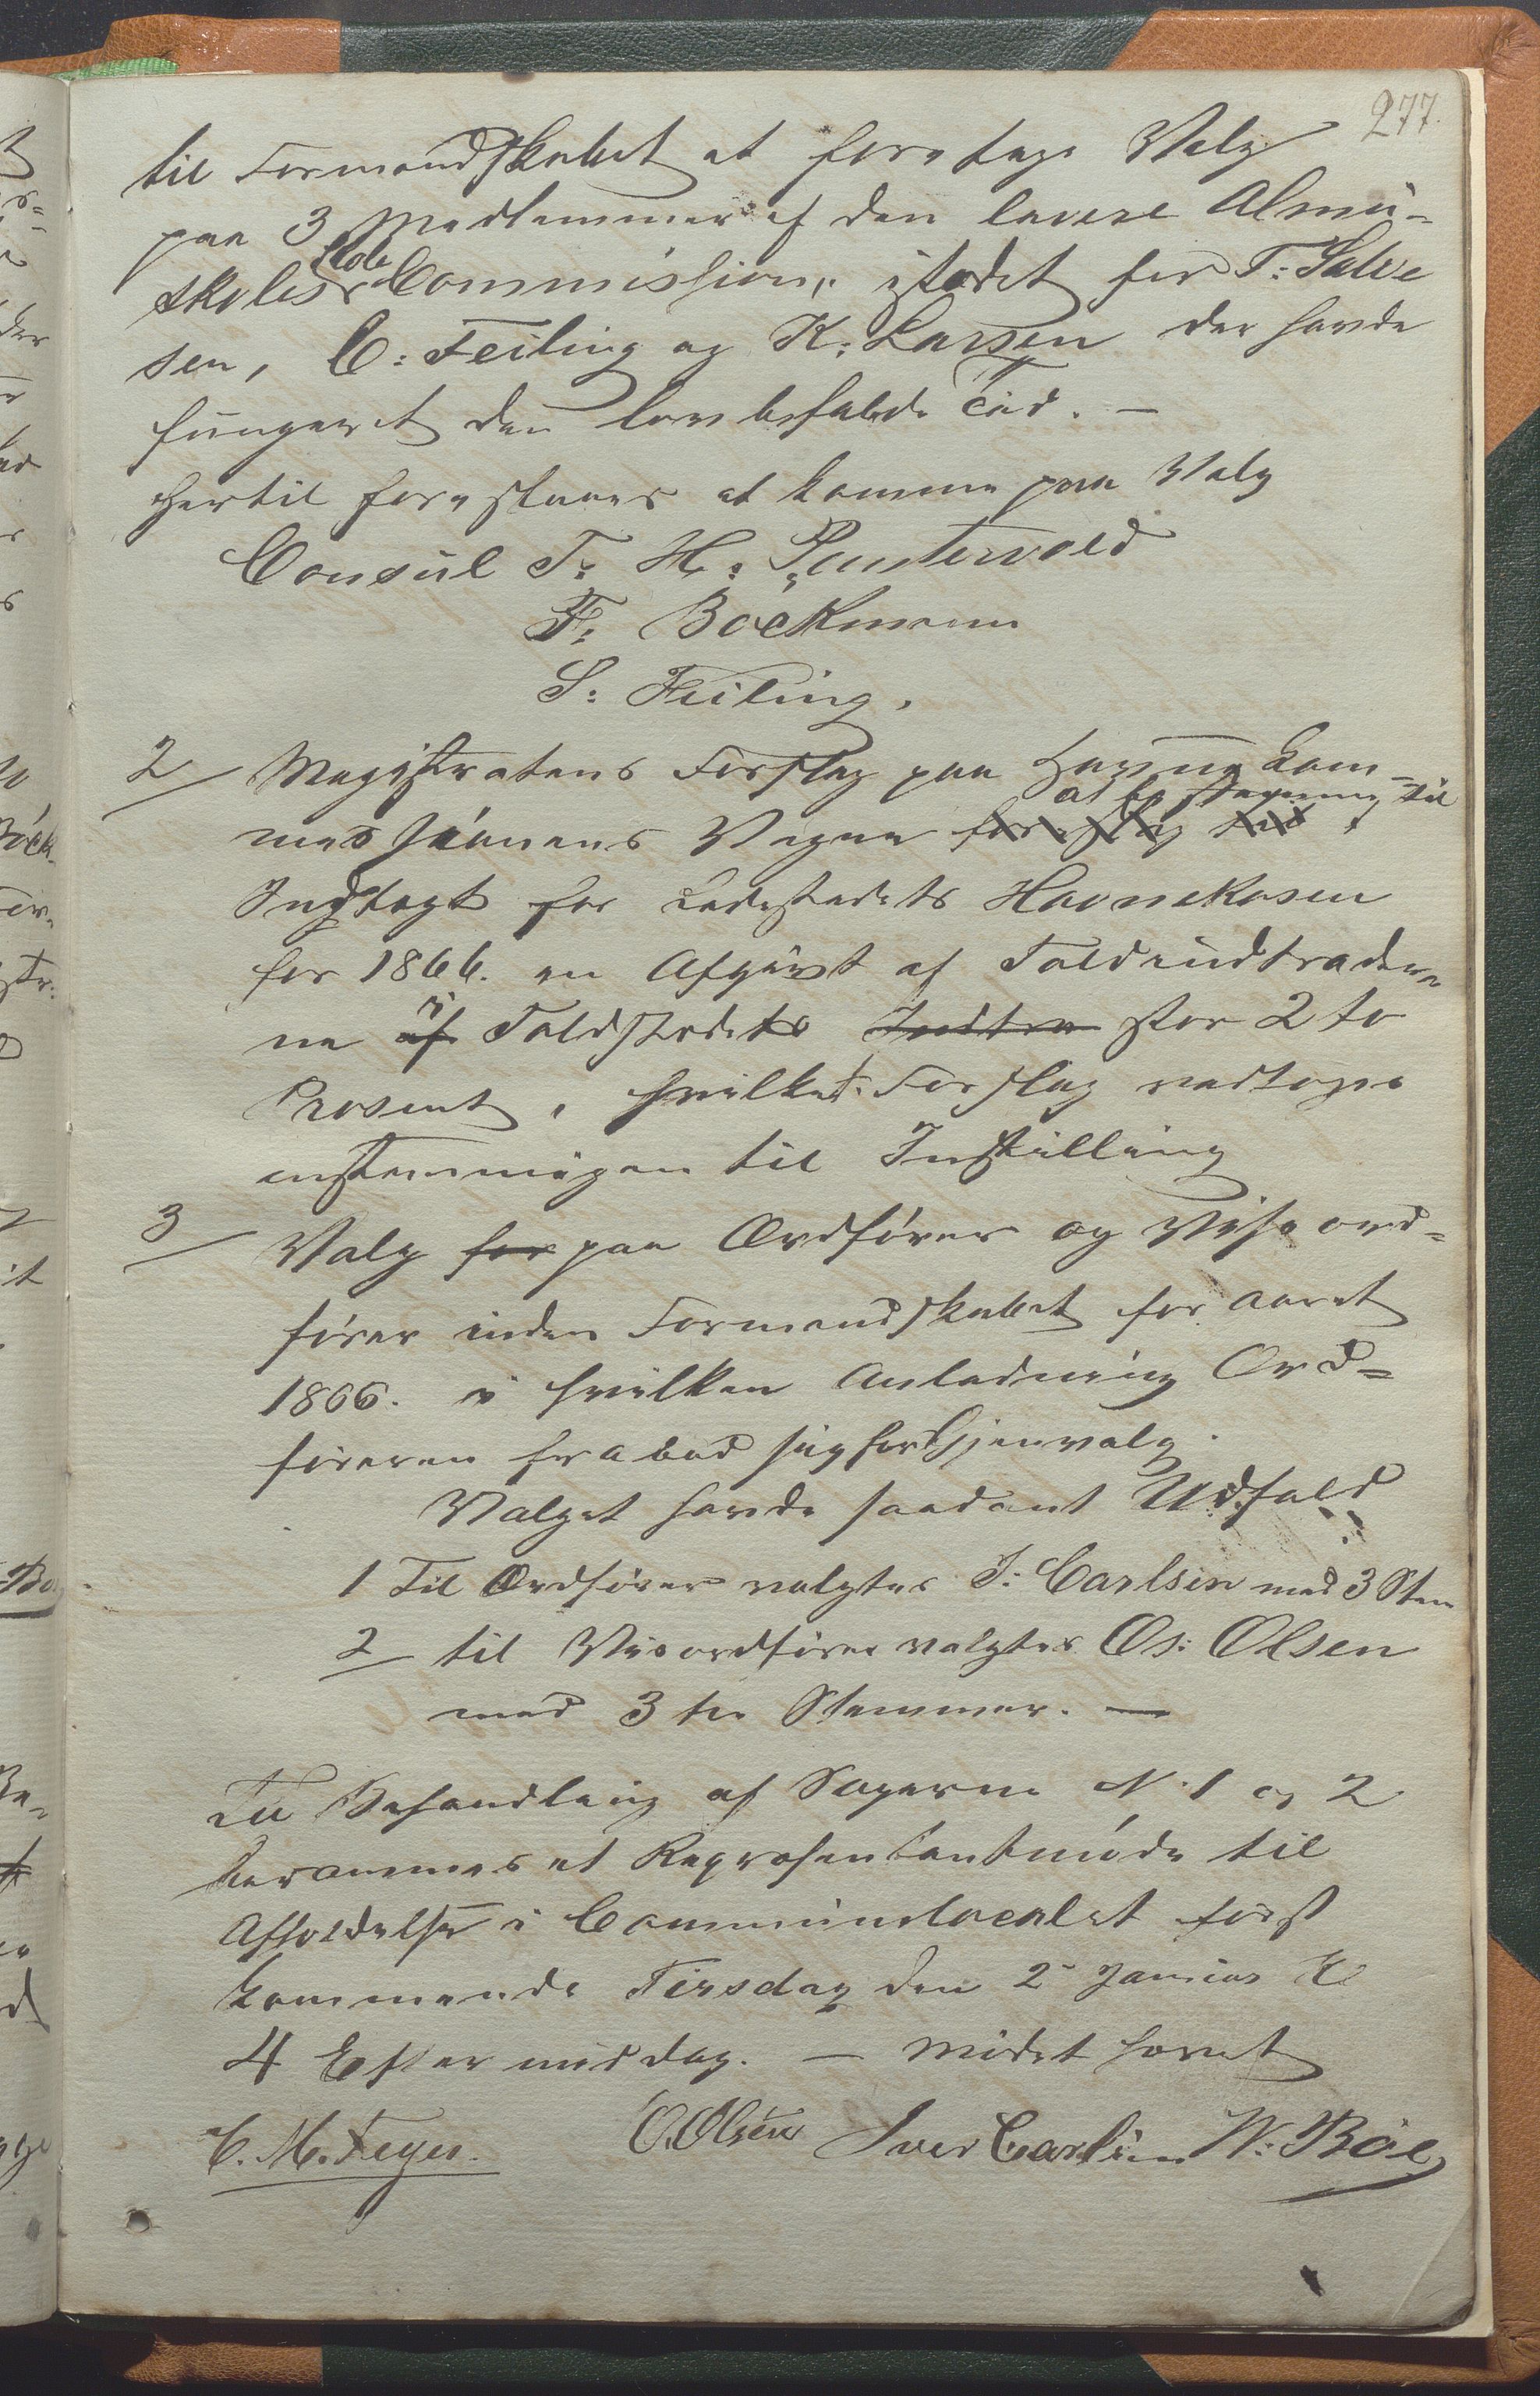 277.
til Formandskabet at foretage Valg
paa 3 Medlemmer af den lavere Almu-
skoles Skole Commission, istedet for T: Salve
sen, C: Feiling og K: Larsen der havde
fungeret den lovbefalede Tid. —
Hertil foreslaaes at komme paa Valg
Consul T. H. Puntervold
F. Böckmann
S: Feiling.
2/ Magistratens Forslag paa Havnekom-
missionens Vegne at bestemme til
Indtægt for Ladestedets Havnekasen
for 1866. en Afgivt af Toldindtraderne
ne af i Toldstedets Indtra stor 2 to
Prosent, hvilket Forslag vedtoges
enstemmigen til Instilling
3/ Valg for paa Ordförer og Viseord-
förer inden Formandskabet for Aaret
1866. i hvilken Anledning Ord-
föreren frabad sig for Gjenvalg.
Valget havde saadant Udfald:
1 Til Ordförer valgtes I: Carlsen med 3 Stem
2/ til Viseordförer valgtes Os: Olsen
med 3 tre Stemmer. —
Til Behandling af Sagerne N. 1 og 2
berammes et Repræsentantmöde til
Afholdelse i Communelocalet först
kommende Tirsdag den 2- Januar Kl
4 Eftermiddag. — Mödet hævet
C. M. Feyer. O. Olsen Iver Carlsen W: Böe